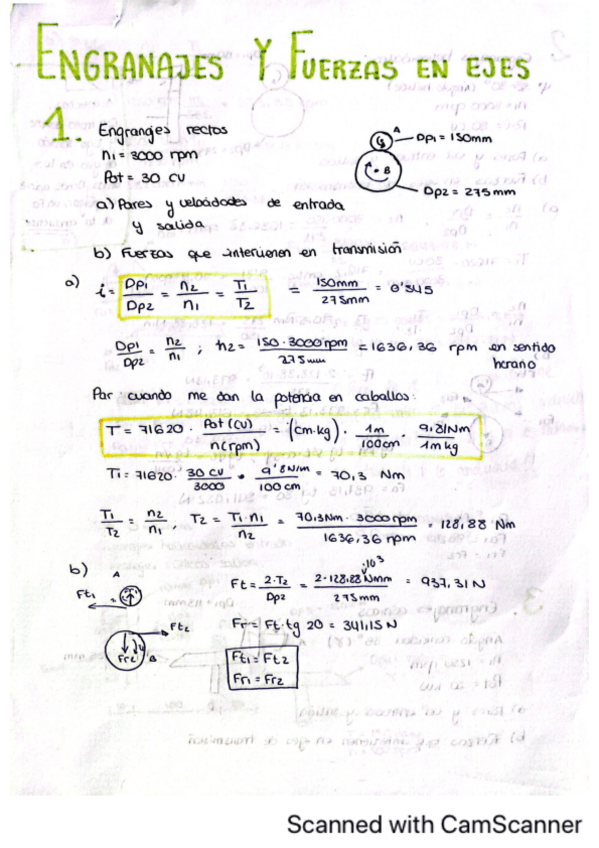 ENGRANAJES Y FUERZAS EN EJES
1. Engranajes rectos
n1 = 3000 rpm
Pot = 30 CV
A
Dp1 = 150mm
B
Dp2 = 275mm
a) Pares y velocidades de entrada
y salida
b) Fuerzas que intervienen en transmisión
a) i = Dp1/Dp2 = n2/n1 = T1/T2 = 150mm/275mm = 0'545
Dp1/Dp2 = n2/n1 ; n2 = 150·3000rpm/275mm = 1636,36 rpm en sentido
horario
Par cuando me dan la potencia en caballos:
T = 71620 · Pot (CV)/n(rpm) = (cm·kg) · 1m/100cm · 9.81Nm/1mkg
T1 = 71620 · 30 CV/3000 · 9'8 N/m/100 cm = 70,3 Nm
T1/T2 = n2/n1, T2 = T1·n1/n2 = 70,3Nm · 3000rpm/1636,36 rpm = 128,88 Nm
b) A
Ft1
Ft = 2·T2/Dp2 = 2·128,88 Nmm/275mm = 937,31 N
·10³
Ft2
Fr2
B
Fr = Ft·tg 20 = 341,15 N
Ft1 = Ft2
Fr1 = Fr2
Scanned with CamScanner